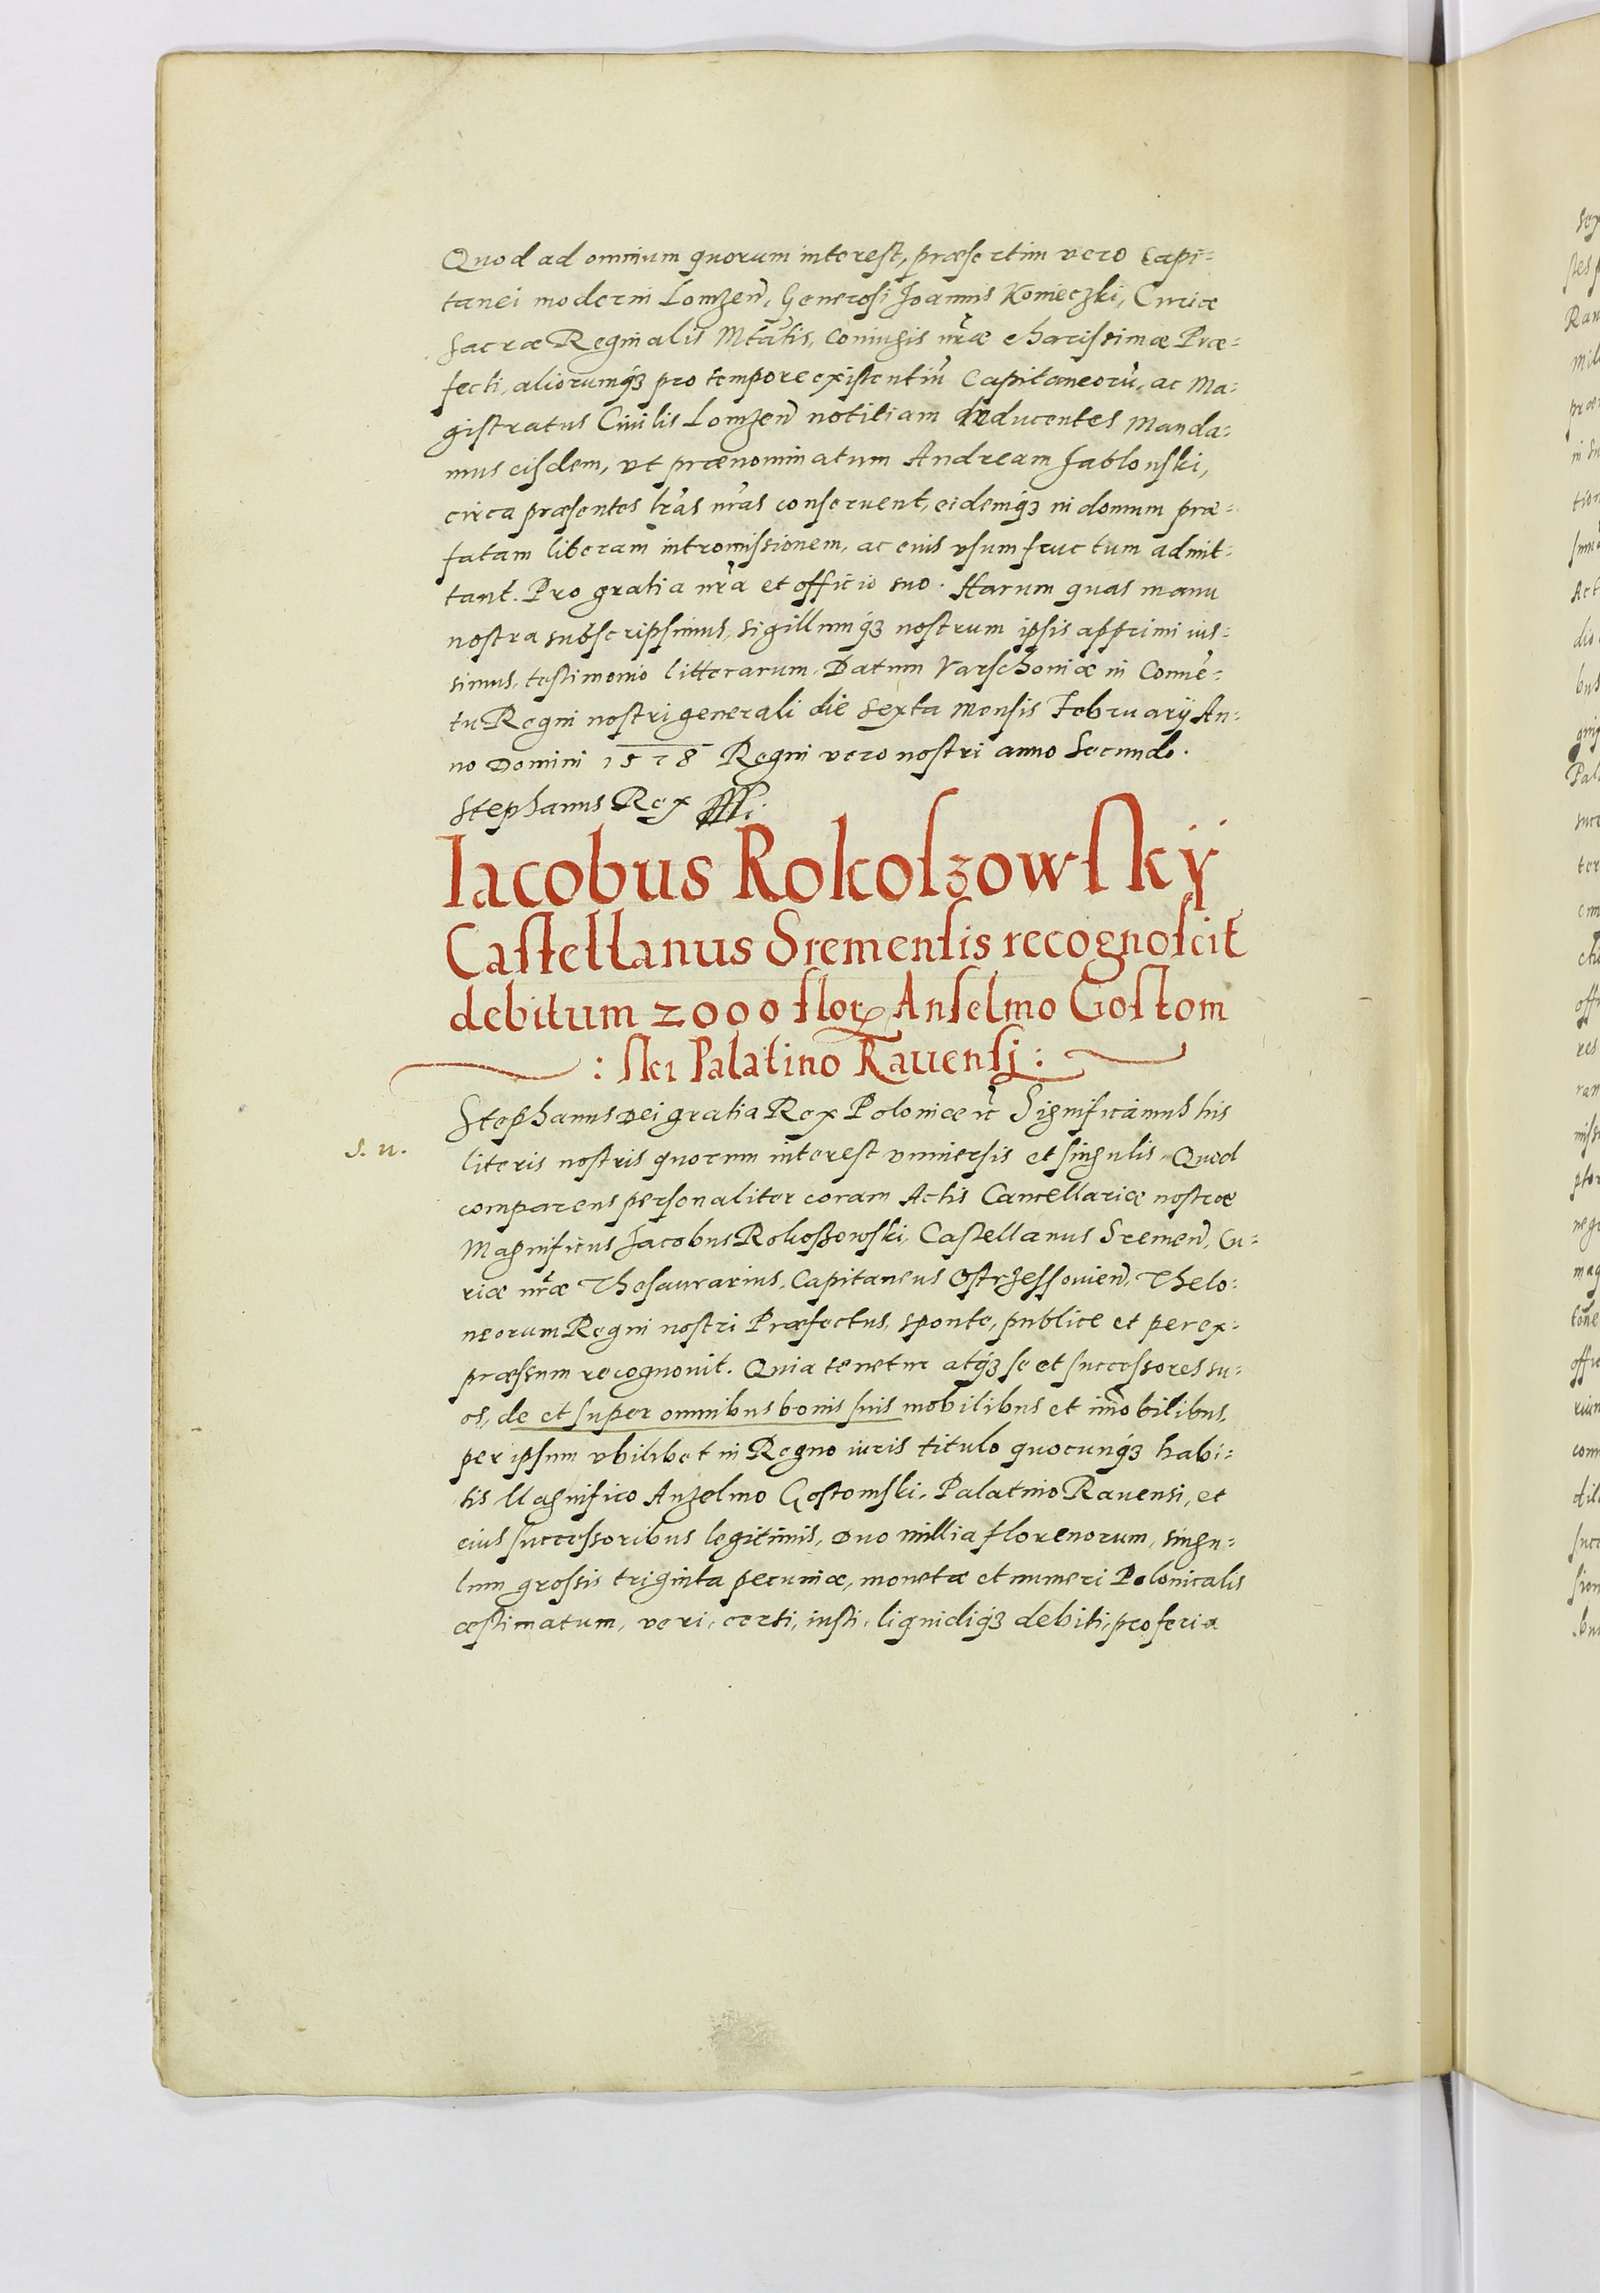 Quod ad omnium quorum interest, præsertim vero Capi-
tanei moderni Lomzen̄, Generosi Joannis Konieczki, Curiæ
sacræ Reginalis Mtatis, Coniugis nr̄æ charissimæ Præ-
fecti, aliorumq́ꝫ pro tempore existentiū Capitaneorū, ac Ma-
gistratus Ciuilis Lomzen̄ notitiam deducentes Manda-
mus eisdem, vt prænominatum Andream Jablonski,
circa præsentes lr̄as nr̄as conseruent, eidemq́ꝫ in domum præ-
fatam liberam intromissionem, ac eius vsumfructum admit-
tant. Pro gratia nr̄a et officio suo. Harum quas manu
nostra subscripsimus, sigillumq́ꝫ nostrum ipsis apprimi ius-
simus, testimonio litterarum. Datum Varschouiæ in Conuē-
tu Regni nostri generali die sexta mensis February An-
no Domini 1578 Regni vero nostri anno Secundo.
Stephanus Rex
Iacobus Rokoszowsky
Castellanus Sremensis recognoscit
debitum 2000 flor Anselmo Gostom
: ski Palatino Rauensi :
Stephanus Dei gratia Rex Poloniæ ꝛc̄ Significamus his
S. n.
literis nostris quorum interest vniuersis et singulis, Quod
comparens personaliter coram Actis Cancellariæ nostræ
Magnificus Jacobus Rokoßowski, Castellanus Sremen̄, Cu-
riæ nr̄æ Thesaurarius, Capitaneus Ostrzessouien̄, Thelo-
neorum Regni nostri Præfectus, sponte, publice et per ex-
præssum recognouit. Quia tenetur atq́ꝫ se et successores su-
os, de et super omnibus bonis suis mobilibus et im̄obilibus,
per ipsum vbilibet in Regno iuris titulo quocunq́ꝫ habi-
tis Magnifico Anzelmo Gostomski, Palatino Rauensi, et
eius successoribus legitimis, Duo millia florenorum, singu-
lum grossis triginta pecuniæ, monetæ et numeri Polonicalis
æstimatum, veri, certi, iusti, liquidiq́ꝫ debiti, pro feria